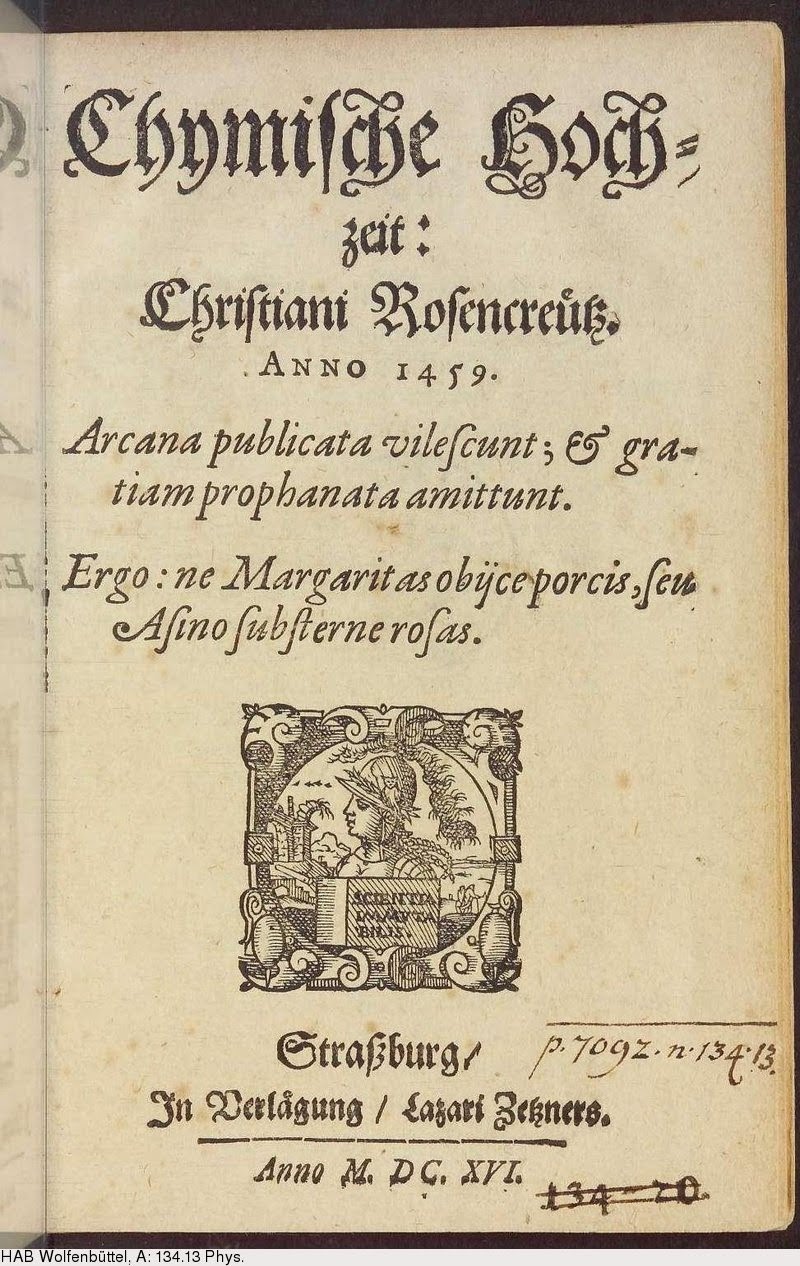 Chymiſche Hoch-
zeit:
Chriſtiani Roſencreuͤtz.
ANNO 1459.
Arcana publicata vileſcunt; & gra-
tiam prophanata amittunt.
Ergo: ne Margaritas obijce porcis, ſeu
Aſino ſubſterne roſas.
SCIENTIA
IMMVTA
BILIS.
Straßburg/
p. 7092. n. 134.13.
In Verlaͤgung / Lazari Zetzners.
Anno M. DC. XVI.
134-20.
HAB Wolfenbüttel, A: 134.13 Phys.